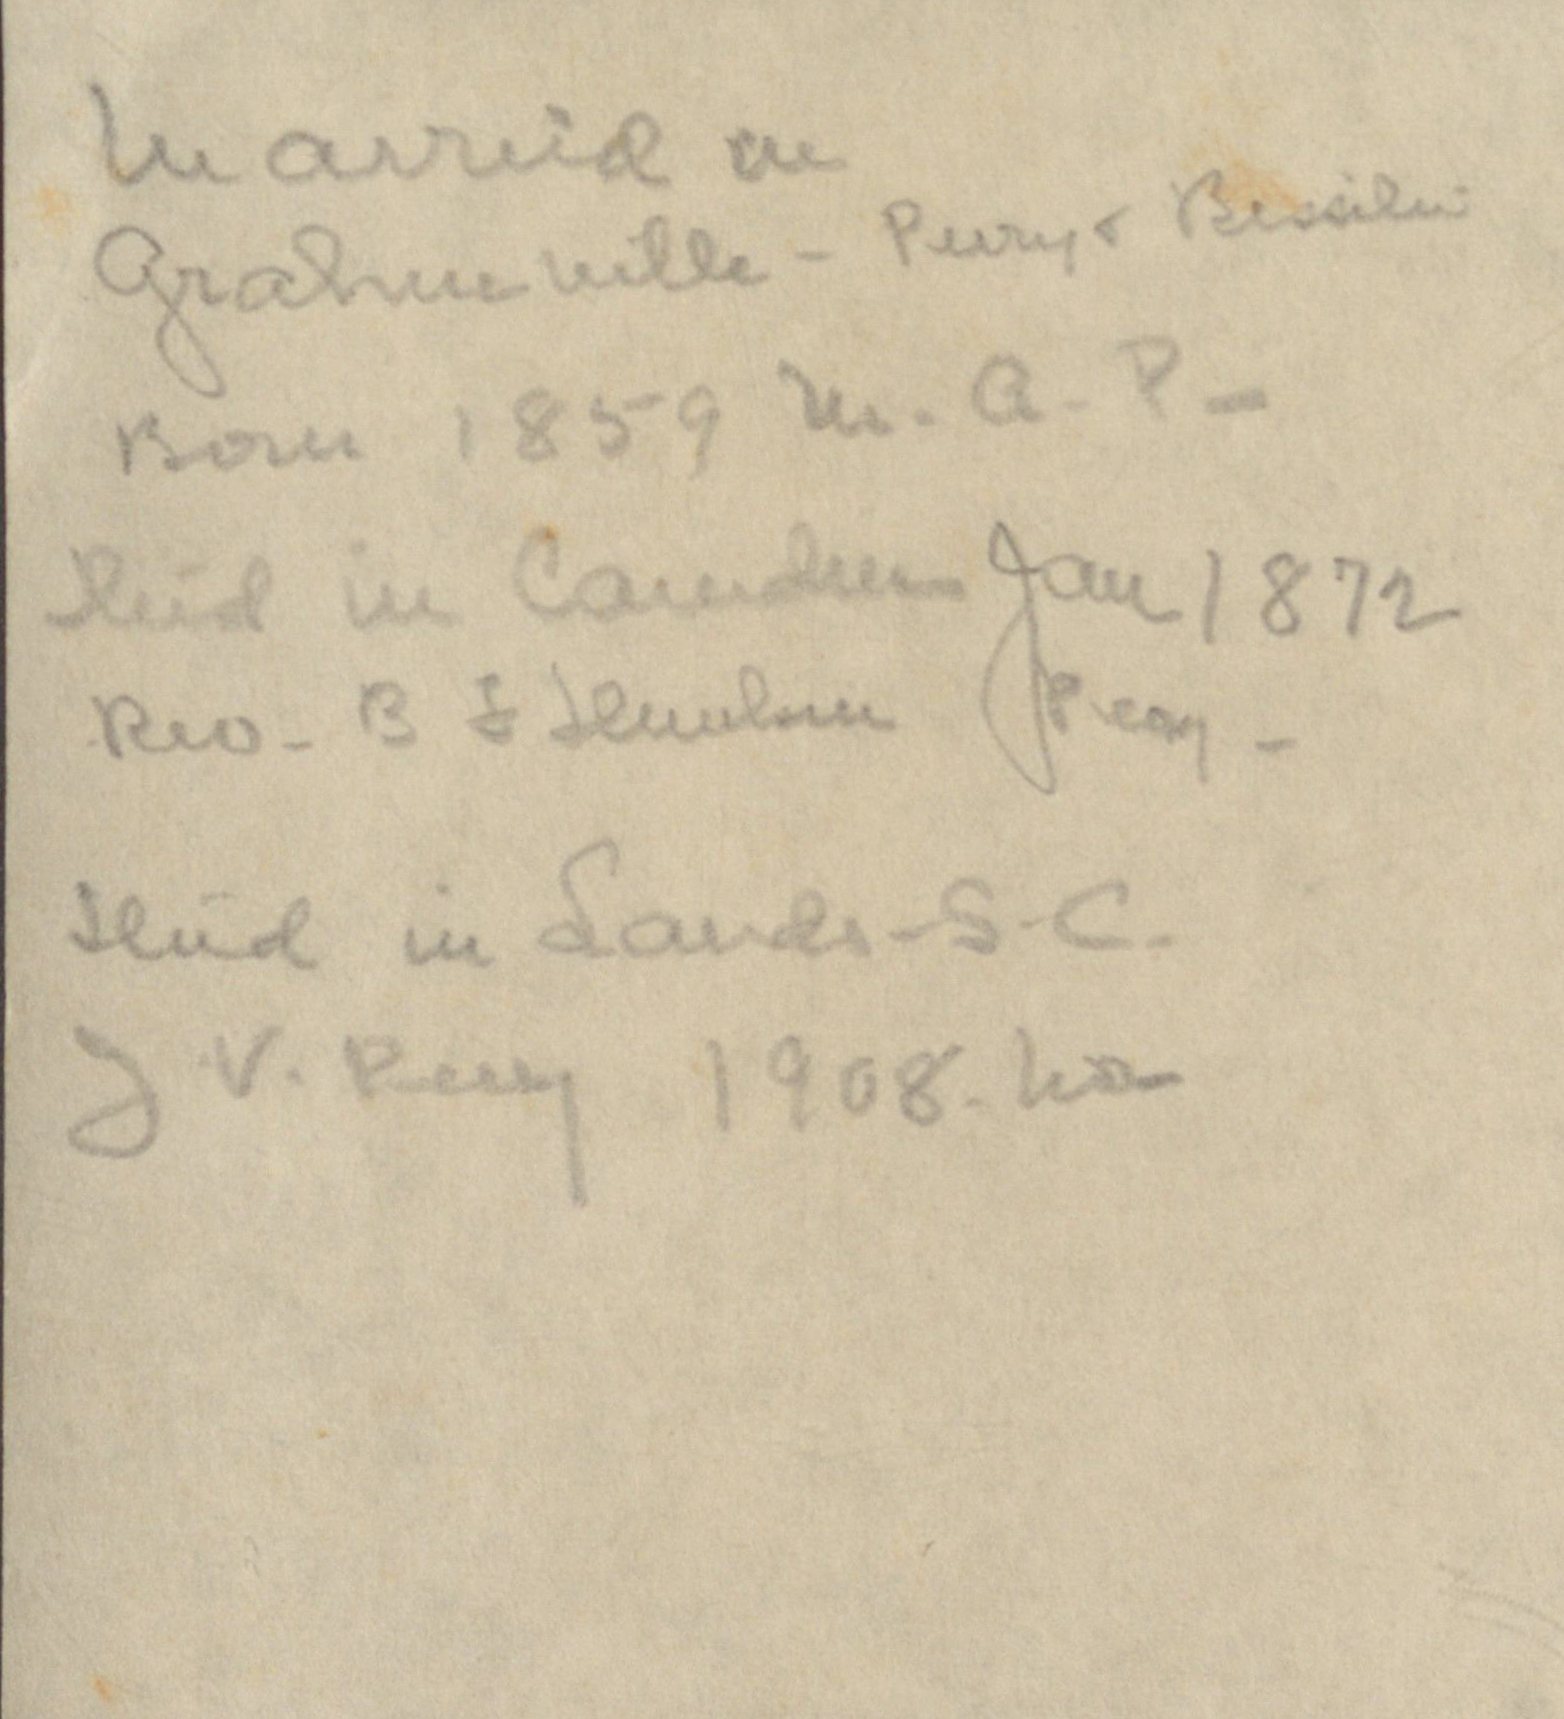 Married in
Grahmville - Perry & Bessilin
Born 1859 M. A. P -
Died in Camden Jan 1872
Rev. B F Perry -
Died in Lands - S. C.
J V. Perry 1908.